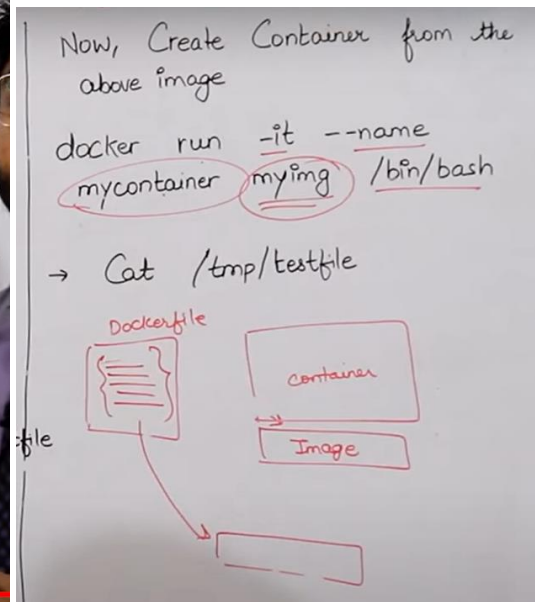 Now, Create Container from the
above image
docker run -it --name
mycontainer myimg /bin/bash
→ Cat /tmp/testfile
Dockerfile
Container
Image
file